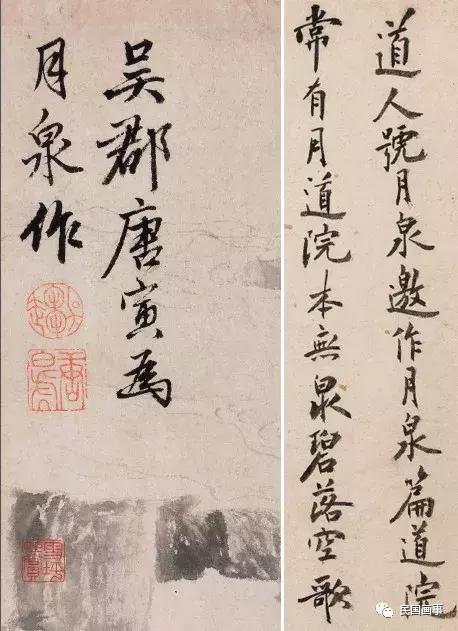 吳郡唐寅為
月泉作
道人號月泉邀作月泉篇道院
常有月道院本無泉碧落空歌
民国画事